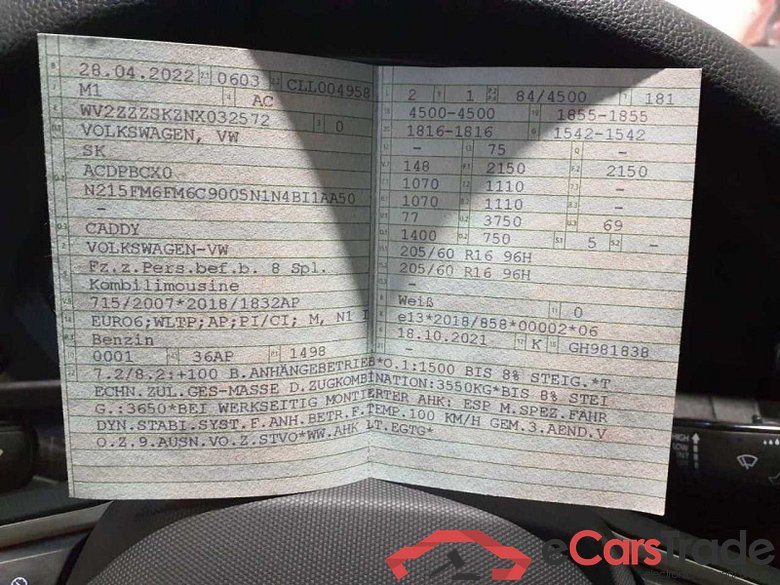 28.04.2022 0603 CLL004958
M1 AC
WV2ZZZSKZNX032572 0
VOLKSWAGEN, VW
SK
ACDPBCX0
N215FM6FM6C9005N1N4BI1AA50
-
CADDY
VOLKSWAGEN-VW
Fz.z.Pers.bef.b. 8 Spl.
Kombilimousine
715/2007*2018/1832AP
EURO6;WLTP;AP;PI/CI; M, N1 I
Benzin
0001 36AP 1498
2 1 84/4500 181
4500-4500 1855-1855
1816-1816 1542-1542
- 75 -
148 2150 2150
1070 1110 -
1070 1110 -
77 3750 69
1400 750 5 -
205/60 R16 96H
205/60 R16 96H
-
Weiß 0
e13*2018/858*00002*06
18.10.2021 K GH98183B
-
7.2/8.2:+100 B.ANHÄNGEBETRIEB*O.1:1500 BIS 8% STEIG.*T
ECHN.ZUL.GES-MASSE D.ZUGKOMBINATION:3550KG*BIS 8% STEI
G.:3650*BEI WERKSEITIG MONTIERTER AHK: ESP M.SPEZ.FAHR
DYN.STABI.SYST.F.ANH.BETR.F.TEMP.100 KM/H GEM.3.AEND.V
O.Z.9.AUSN.VO.Z.STVO*WW.AHK LT.EGTG*
HIGH
LOW
eCarstrade